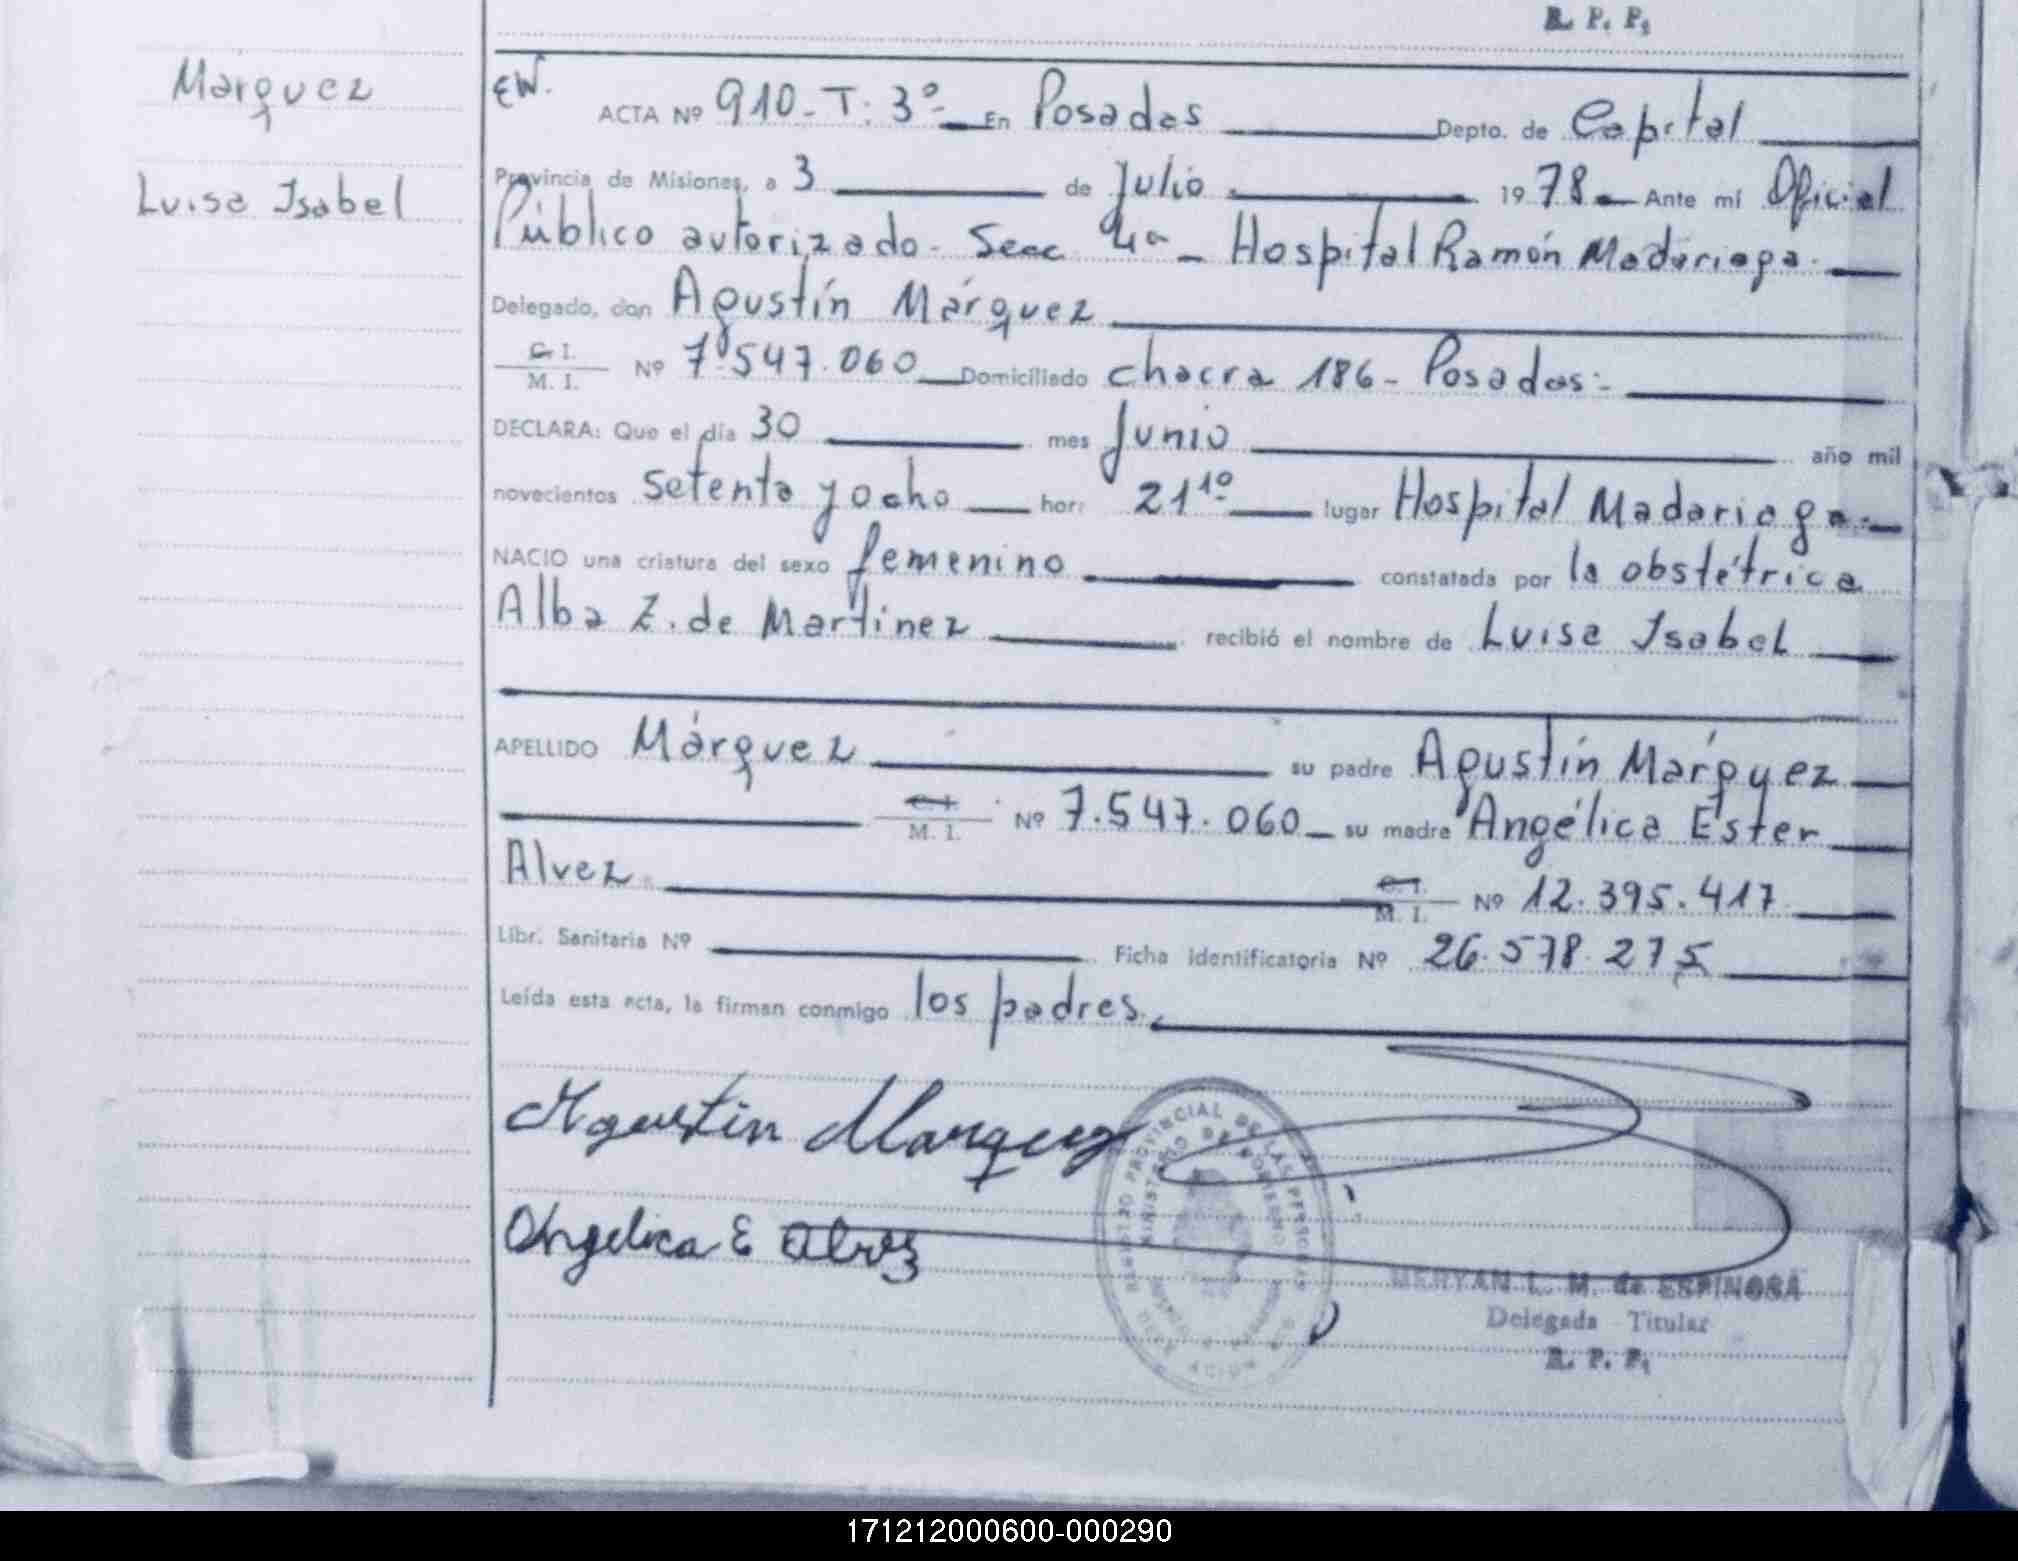 R. P. P.
Márquez
Luisa Isabel
EW.
ACTA Nº 910 - T: 3º - En Posadas Depto. de Capital
Provincia de Misiones, a 3 de Julio 1978 - Ante mí Oficial
Público autorizado - Secc 4a - Hospital Ramón Madariaga -
Delegado, don Agustín Márquez
C. I. / M. I. Nº 7.547.060 Domiciliado chacra 186 - Posadas -
DECLARA: Que el día 30 mes Junio año mil
novecientos setenta y ocho hora 21 10 lugar Hospital Madariaga -
NACIO una criatura del sexo femenino constatada por la obstétrica
Alba Z. de Martinez recibió el nombre de Luisa Isabel
APELLIDO Márquez su padre Agustín Márquez
C. I. / M. I. Nº 7.547.060 su madre Angélica Ester
Alvez C. I. / M. I. Nº 12.395.417
Libr. Sanitaria Nº Ficha Identificatoria Nº 26.578.275
Leída esta acta, la firman conmigo los padres.
Agustin Marquez
Angelica E Alvez
REGISTRO PROVINCIAL DE LAS PERSONAS
MINISTERIO DE GOBIERNO
MERYAN L. M. de ESPINOSA
Delegada Titular
R. P. P.
171212000600-000290